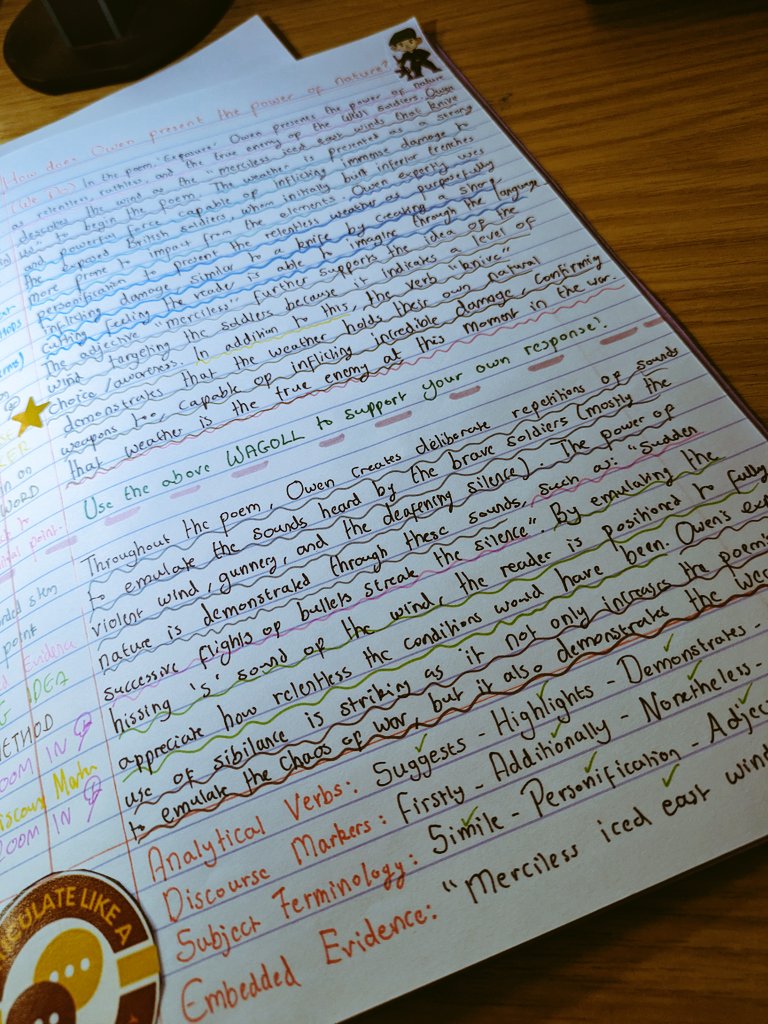 How does Owen present the power of nature?
In the poem 'Exposure' Owen presents the power of nature
as relentless, ruthless, and the true enemy of the WWI soldiers. Owen
describes the wind as the "merciless iced east winds that knive
us" to begin the poem. The weather is presented as a strong
and powerful force capable of inflicting immense damage to
the exposed British soldiers, whom initially built inferior trenches
more prone to impact from the elements. Owen expertly uses
personification to present the relentless weather as purposefully
inflicting damage, similar to a knife by creating a sharp
cutting feeling the reader is able to imagine through the language
The adjective "merciless" further supports the idea of the
wind targeting the soldiers because it indicates a level of
choice/awareness. In addition to this, the verb "knive"
demonstrates that the weather holds their own natural
weapons too, capable of inflicting incredible damage, confirming
that weather is the true enemy at this moment in the war.
Use the above WAGOLL to support your own response!
Throughout the poem, Owen creates deliberate repetitions of sounds
to emulate the sounds heard by the brave soldiers (mostly the
violent wind, gunnery, and the deafening silence). The power of
nature is demonstrated through these sounds, such as: "Sudden
successive flights of bullets streak the silence". By emulating the
hissing 's' sound of the wind, the reader is positioned to fully
appreciate how relentless the conditions would have been. Owen's
use of sibilance is striking as it not only increases the poem's
to emulate the chaos of war, but it also demonstrates the
Analytical Verbs: Suggests - Highlights - Demonstrates -
Discourse Markers: Firstly - Additionally - Nonetheless -
Subject Terminology: Simile - Personification -
Embedded Evidence: "Merciless iced east
WORD
point.
point
Evidence
IDEA
METHOD
ZOOM IN
ZOOM IN
LIKE A